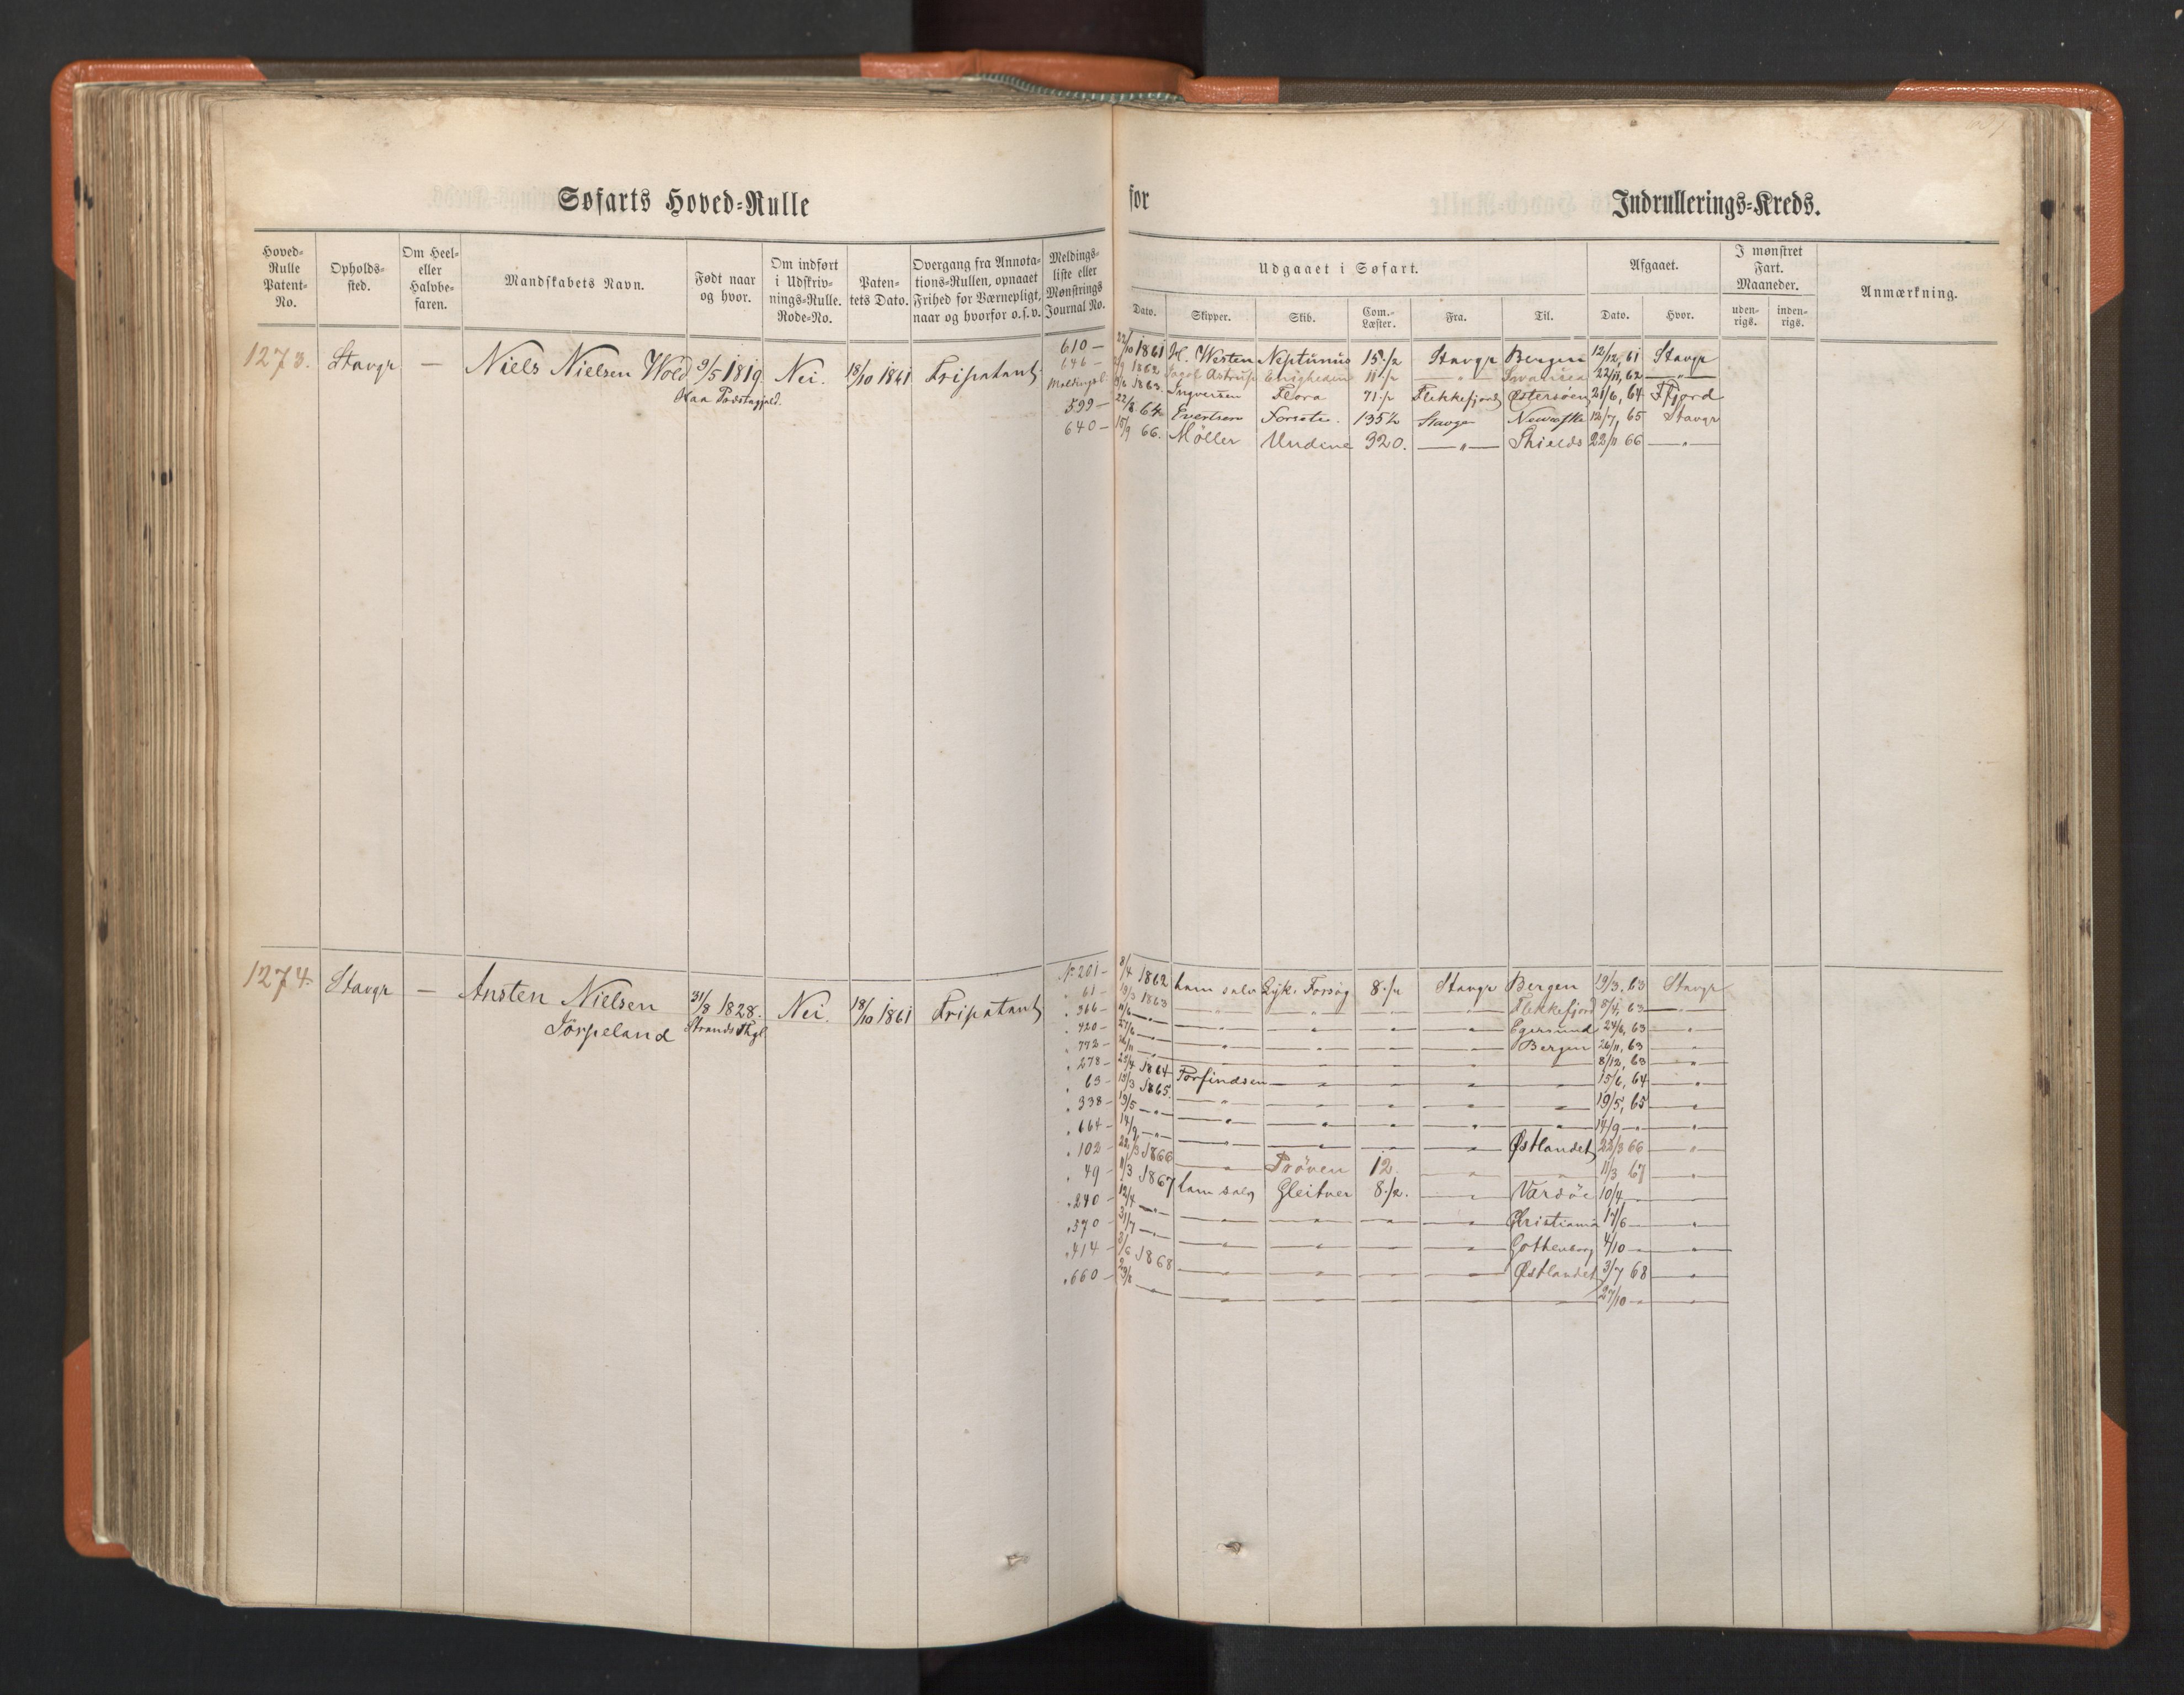 Søfarts Hoved-Rulle for Indrullerings-Kreds.
Hoved-Rulle Patent-No. Opholds-sted. Om Heel- eller Halvbe-faren. Mandskabets Navn. Født naar og hvor. Om indført i Udskriv-nings-Rulle. Rode-No. Paten-tets Dato. Overgang fra Annota-tions-Rullen, opnaaet Frihed for Værnepligt, naar og hvorfor o.s.v. Meldings-liste eller Mønstrings Journal No.
Udgaaet i Søfart. Afgaaet. I mønstret Fart. Maaneder. Anmærkning.
Dato. Skipper. Skib. Com.-Læster. Fra. Til. Dato. Hvor. uden-rigs. inden-rigs.
1273. Stavgr — Niels Nielsen Wold 9/5 1819 Nei. 18/10 1861 Fripatent 610 — 22/10 1861 H. Westen Neptunus 15 1/2 Stavgr Bergen 12/12, 61 Stavgr
646 — 1862 Jacob Astrup Enigheden 11 1/2 — " — Swansea 22/11, 62 — " —
1863 Ingversen Flora 71 1/2 Flekkefjord Østersøen 21/6, 64 Ffjord
599 — 22/8 64 Evertsen 135 1/2 Stavgr 12/7, 65 Stavgr
640 — 15/9 66. Möller Undine 320. — " — Shields 22/11 66 — " —
1274. Stavgr — Ansten Nielsen 31/8 1828. Nei. 18/10 1861 Fripatent No 201 — 8/4 1862 ham selv Forsög 8 1/2 Stavgr Bergen 19/3, 63 Stavgr
Jörpeland Strands
" 61 — 19/3 1863 — " — — " — — " — Flekkefjord 8/4, 63 — " —
" 366 — 11/6 — " — — " — — " — — " — Egersund 24/6, 63 — " —
" 420 — 27/6 — " — — " — — " — — " — Bergen 26/11, 63 — " —
" 772 — 26/11 — " — — " — — " — — " — — " — 8/12, 63 — " —
" 278 — 1864 Torfindsen — " — — " — — " — 15/6, 64 — " —
" 63 — 15/3 1865. — " — — " — — " — — " — 19/5, 65 — " —
" 338 — 19/5 — " — — " — — " — — " — — " — 14/9 — " — — " —
" 664 — 14/9 — " — — " — — " — — " — Østlandet 22/3 66 — " —
" 102 — 22/3 1866 — " — Pröven 12. — " — — " — 11/3 67 — " —
" 49 — 11/3 1867 ham selv Gleitner 8 1/2. — " — Vardöe 10/4 — " —
" 240 — 12/4 — " — — " — — " — — " — Christiania 17/6 — " — — " —
" 570 — 31/7 — " — — " — — " — — " — Gothenborg 4/10 — " — — " —
" 414 — 3/6 1868 — " — — " — — " — Østlandet 3/7 68 — " —
" 660 — — " — — " — — " — — " — — " — 27/10 — " — — " —